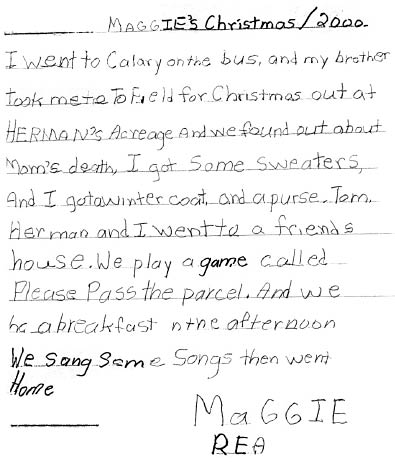 MAGGIE's Christmas/2000
I went to Calary on the bus, and my brother
Took me to Tofield for Christmas out at
HERMAN's Acreage And we found out about
Mom's death, I got Some sweaters,
And I got a winter coat, and a purse. Tom.
Herman and I went to a friends
house. We play a game called
Please Pass the parcel. And we
ha a breakfast n the afternoon
We Sang Some Songs then went
Home
MaGGIE
REA